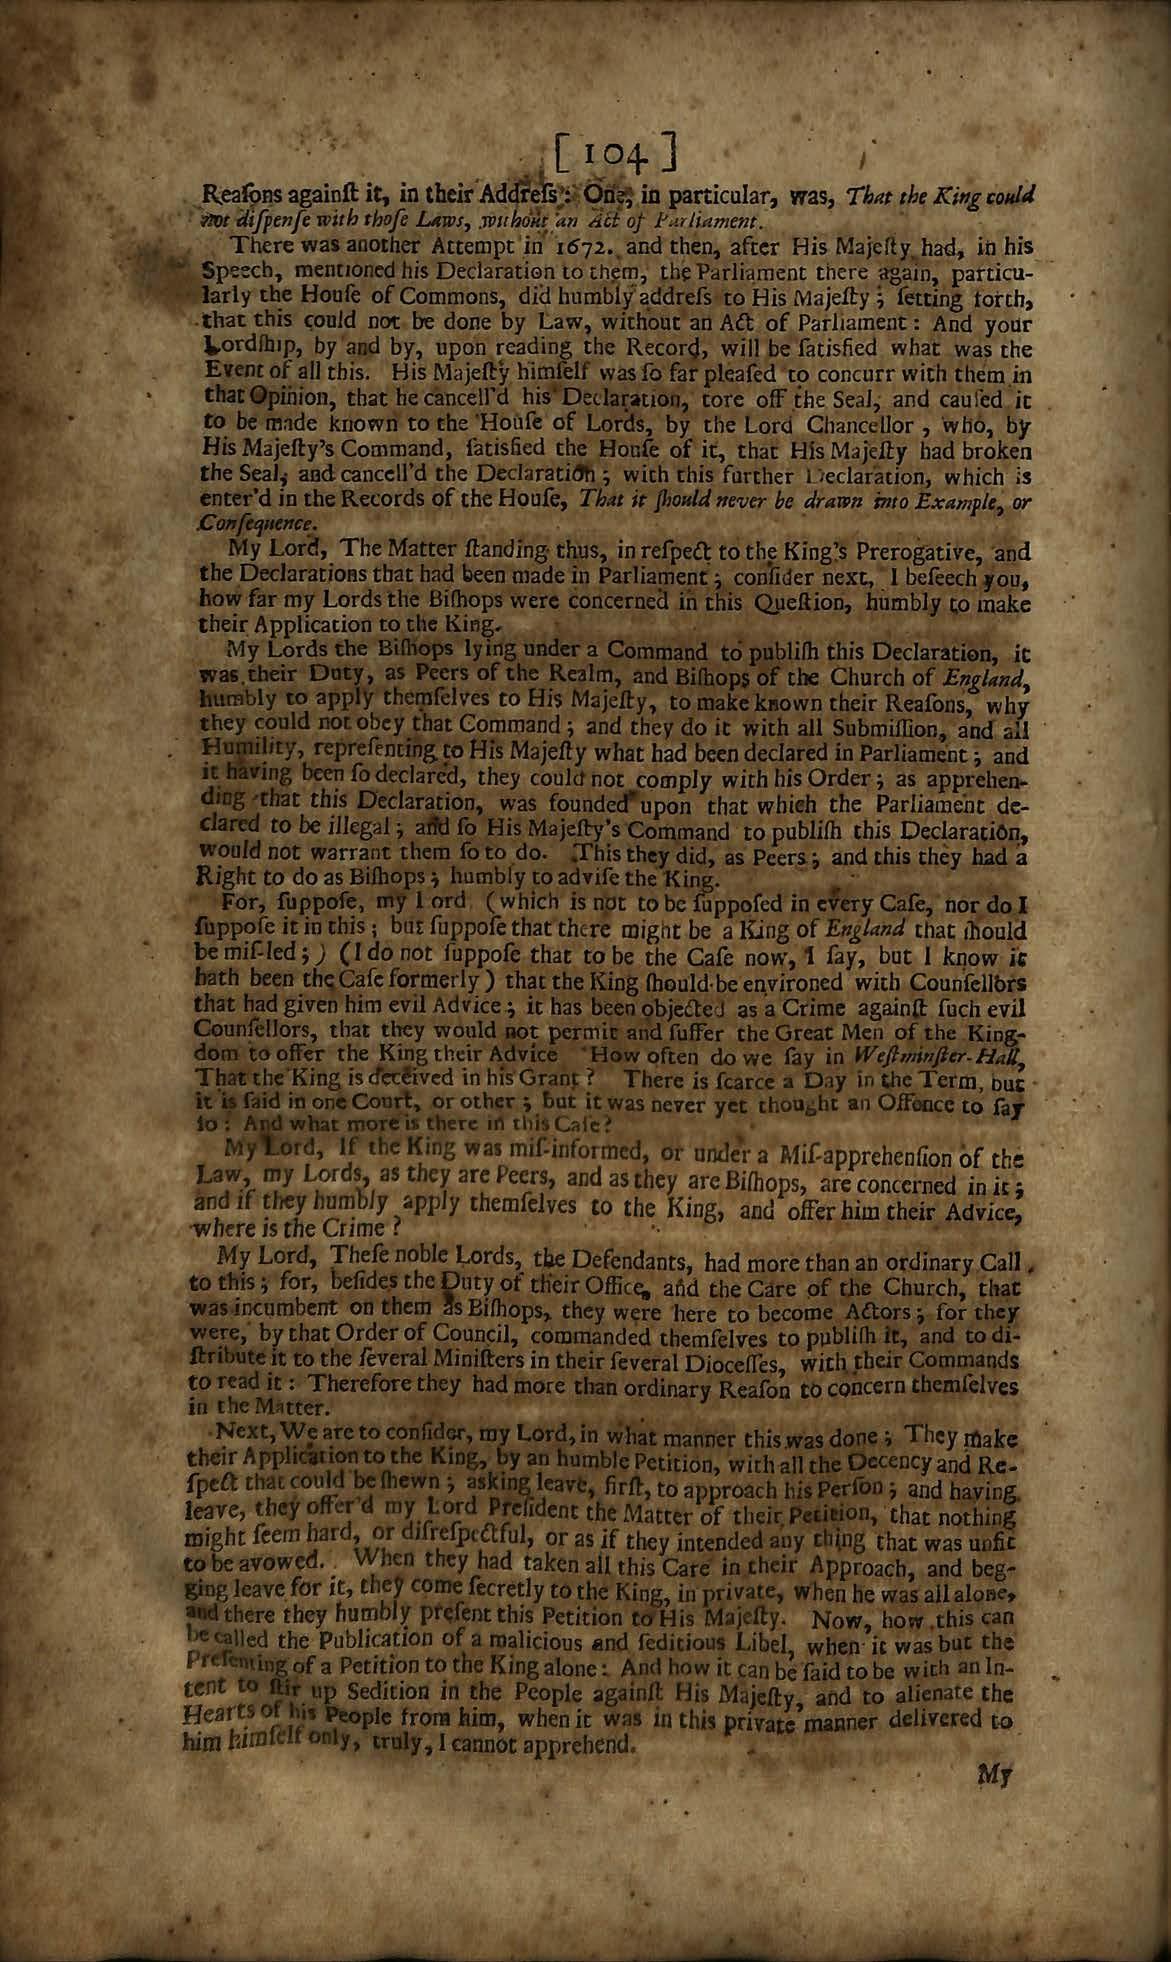 [ 104 ]
Reaſons againſt it, in their Addreſs: One, in particular, was, That the King could
not diſpenſe with thoſe Laws, without an Act of Parliament.
There was another Attempt in 1672. and then, after His Majeſty had, in his
Speech, mentioned his Declaration to them, the Parliament there again, particu-
larly the Houſe of Commons, did humbly addreſs to His Majeſty; ſetting forth,
that this could not be done by Law, without an Act of Parliament: And your
Lordſhip, by and by, upon reading the Record, will be ſatisfied what was the
Event of all this. His Majeſty himſelf was ſo far pleaſed to concurr with them in
that Opinion, that he cancell'd his Declaration, tore off the Seal, and cauſed it
to be made known to the Houſe of Lords, by the Lord Chancellor, who, by
His Majeſty's Command, ſatisfied the Houſe of it, that His Majeſty had broken
the Seal, and cancell'd the Declaration; with this further Declaration, which is
enter'd in the Records of the Houſe, That it ſhould never be drawn into Example, or
Conſequence.
My Lord, The Matter ſtanding thus, in reſpect to the King's Prerogative, and
the Declarations that had been made in Parliament; conſider next, I beſeech you,
how far my Lords the Biſhops were concerned in this Queſtion, humbly to make
their Application to the King.
My Lords the Biſhops lying under a Command to publiſh this Declaration, it
was their Duty, as Peers of the Realm, and Biſhops of the Church of England,
humbly to apply themſelves to His Majeſty, to make known their Reaſons, why
they could not obey that Command; and they do it with all Submiſſion, and all
Humility, repreſenting to His Majeſty what had been declared in Parliament; and
it having been ſo declared, they could not comply with his Order; as apprehen-
ding that this Declaration, was founded upon that which the Parliament de-
clared to be illegal; and ſo His Majeſty's Command to publiſh this Declaration,
would not warrant them ſo to do. This they did, as Peers; and this they had a
Right to do as Biſhops; humbly to adviſe the King.
For, ſuppoſe, my Lord (which is not to be ſuppoſed in every Caſe, nor do I
ſuppoſe it in this; but ſuppoſe that there might be a King of England that ſhould
be miſ-led;) (I do not ſuppoſe that to be the Caſe now, I ſay, but I know it
hath been the Caſe formerly) that the King ſhould be environed with Counſellors
that had given him evil Advice; it has been objected as a Crime againſt ſuch evil
Counſellors, that they would not permit and ſuffer the Great Men of the King-
dom to offer the King their Advice How often do we ſay in Weſtminſter-Hall,
That the King is deceived in his Grant? There is ſcarce a Day in the Term, but
it is ſaid in one Court, or other; but it was never yet thought an Offence to ſay
ſo: And what more is there in this Caſe?
My Lord, If the King was miſ-informed, or under a Miſ-apprehenſion of the
Law, my Lords, as they are Peers, and as they are Biſhops, are concerned in it;
and if they humbly apply themſelves to the King, and offer him their Advice,
where is the Crime?
My Lord, Theſe noble Lords, the Defendants, had more than an ordinary Call
to this; for, beſides the Duty of their Office, and the Care of the Church, that
was incumbent on them as Biſhops, they were here to become Actors; for they
were, by that Order of Council, commanded themſelves to publiſh it, and to di-
ſtribute it to the ſeveral Miniſters in their ſeveral Dioceſſes, with their Commands
to read it: Therefore they had more than ordinary Reaſon to concern themſelves
in the Matter.
Next, We are to conſider, my Lord, in what manner this was done; They make
their Application to the King, by an humble Petition, with all the Decency and Re-
ſpect that could be ſhewn; asking leave, firſt, to approach his Perſon; and having
leave, they offer'd my Lord Preſident the Matter of their Petition, that nothing
might ſeem hard, or diſreſpectful, or as if they intended any thing that was unfit
to be avowed. When they had taken all this Care in their Approach, and beg-
ging leave for it, they come ſecretly to the King, in private, when he was all alone,
and there they humbly preſent this Petition to His Majeſty. Now, how this can
be called the Publication of a malicious and ſeditious Libel, when it was but the
Preſenting of a Petition to the King alone: And how it can be ſaid to be with an In-
tent to ſtir up Sedition in the People againſt His Majeſty, and to alienate the
Hearts of his People from him, when it was in this private manner delivered to
him himſelf only, truly, I cannot apprehend.
My